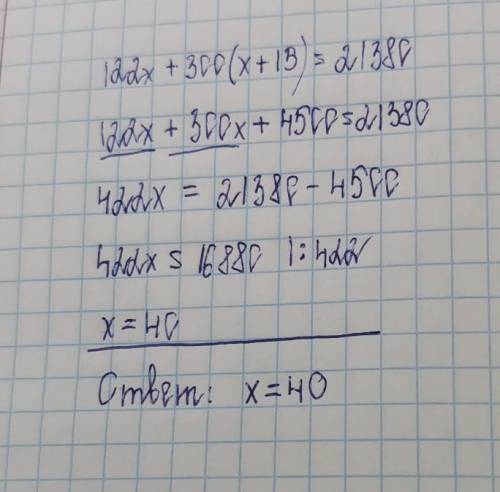 122x + 300(x+15) = 21380
122x + 300x + 4500 = 21380
422x = 21380 - 4500
422x = 16880 |: 422
x = 40
Ответ: x = 40